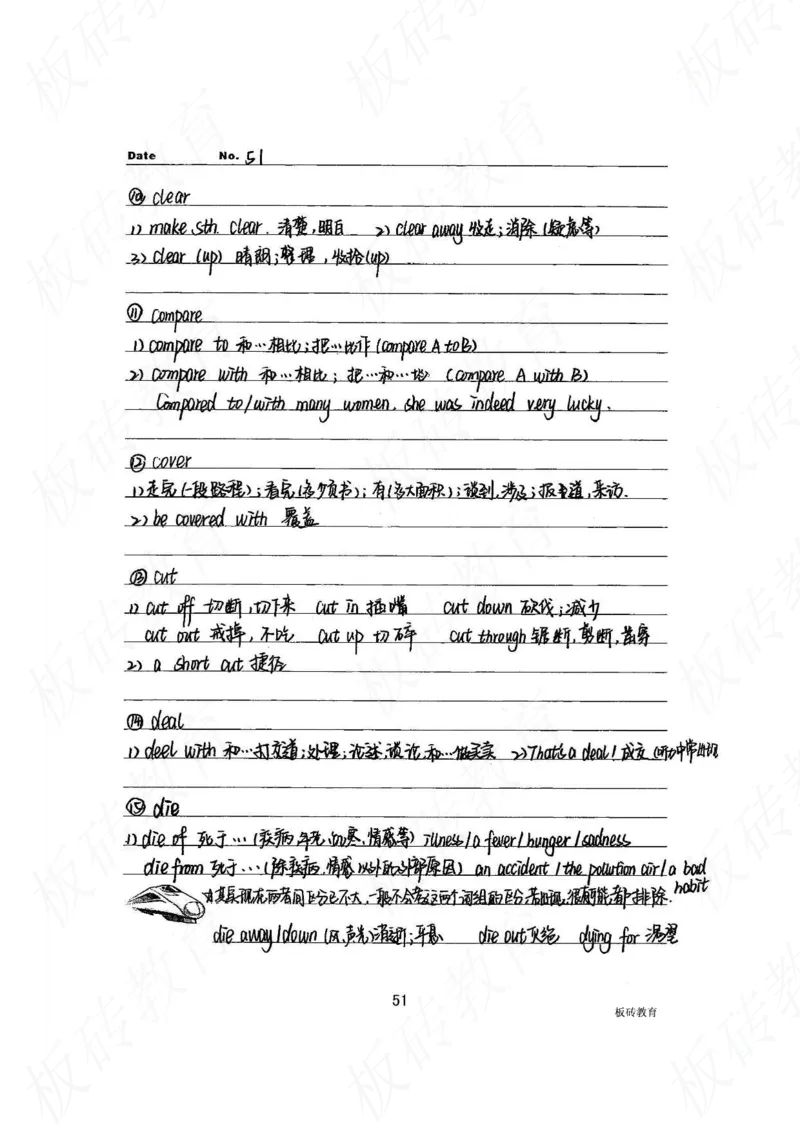 Date No. 51
⑩ clear
1) make sth. clear. 清楚,明白 2) clear away 收走;消除(疑虑等)
3) clear (up) 晴朗;整理,收拾(up)
⑪ compare
1) compare to 和…相比;把…比作(compare A to B)
2) compare with 和…相比;把…和…比 (compare A with B)
Compared to/with many women, she was indeed very lucky.
⑫ cover
1) 走完(一段路程);看完(多少页书);有(多大面积);谈到,涉及;报道,采访.
2) be covered with 覆盖
⑬ cut
1) cut off 切断,切下来 cut in 插嘴 cut down 砍伐;减少
cut out 戒掉,不吃 cut up 切碎 cut through 锯断,剪断,凿穿
2) a short cut 捷径
⑭ deal
1) deel with 和…打交道;处理;论述,谈论,和…做买卖 2) That's a deal! 成交(听力中常出现
⑮ die
1) die of 死于…(疾病,年老,饥寒,情感等) illness/a fever/hunger/sadness
die from 死于…(除疾病,情感以外的外部原因) an accident/the pollurtion air/a bad habit
其实现在两者间区分已不大,一般不会考这两个词组的区分,若出现,很可能都排除.
die away/down (风,声,光)消逝;平息 die out 灭绝 dying for 渴望
51
板砖教育